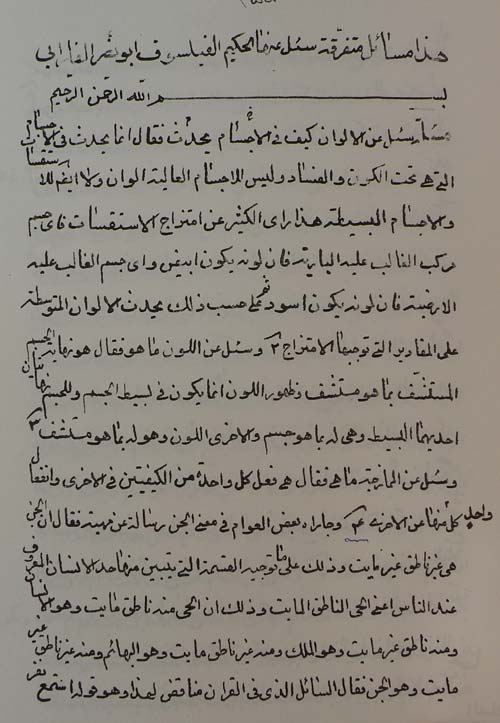 هذا مسائل متفرقة سئل عنها الحكيم الفيلسوف ابو نصر الفارابي
بسم الله الرحمن الرحيم
سئل عن الالوان كيف في الاجسام محدث فقال انما يحدث في الاجسام
التي هي تحت الكون والفساد وليس للاجسام العالية الوان ولا ايضا للاستقسات
والاجسام البسيطة هذا راى الكثير عن امتزاج الاستقسات فاى جسم
مركب الغالب عليه النارية فان لونه يكون ابيض واى جسم الغالب عليه
الارضية فان لونه يكون اسود فعلى حسب ذلك يحدث الالوان المتوسطة
على المقادير التي توجبها الامتزاج ٢ وسئل عن اللون ما هو فقال هو نهاية الجسم
المستشف بما هو مستشف وظهور اللون انما يكون في بسيط الجسم وللجسم نهايتان
احديهما البسيطة وهي له بما هو جسم والاخرى اللون وهو له بما هو مستشف ٣
وسئل عن الممازجة ما هي فقال هي فعل كل واحدة من الكيفيتين في الاخرى وانفعال
كل واحد منهما عن الاخرى ٤ وجاراه بعض العوام في معنى الجن رسالة عن مهيته فقال ان الجن
هي غير ناطق غير مايت وذلك على ما توجبه القسمة التي يتبين منها حد الانسان المعروف
عند الناس اعني الحى الناطق المايت وذلك ان الحى منه ناطق مايت وهو الانسان
ومنه ناطق غير مايت وهو الملك ومنه غير ناطق مايت وهو البهائم ومنه غير ناطق غير
مايت وهو الجن فقال السائل الذى في القران مناقض لهذا وهو قوله استمع نفر